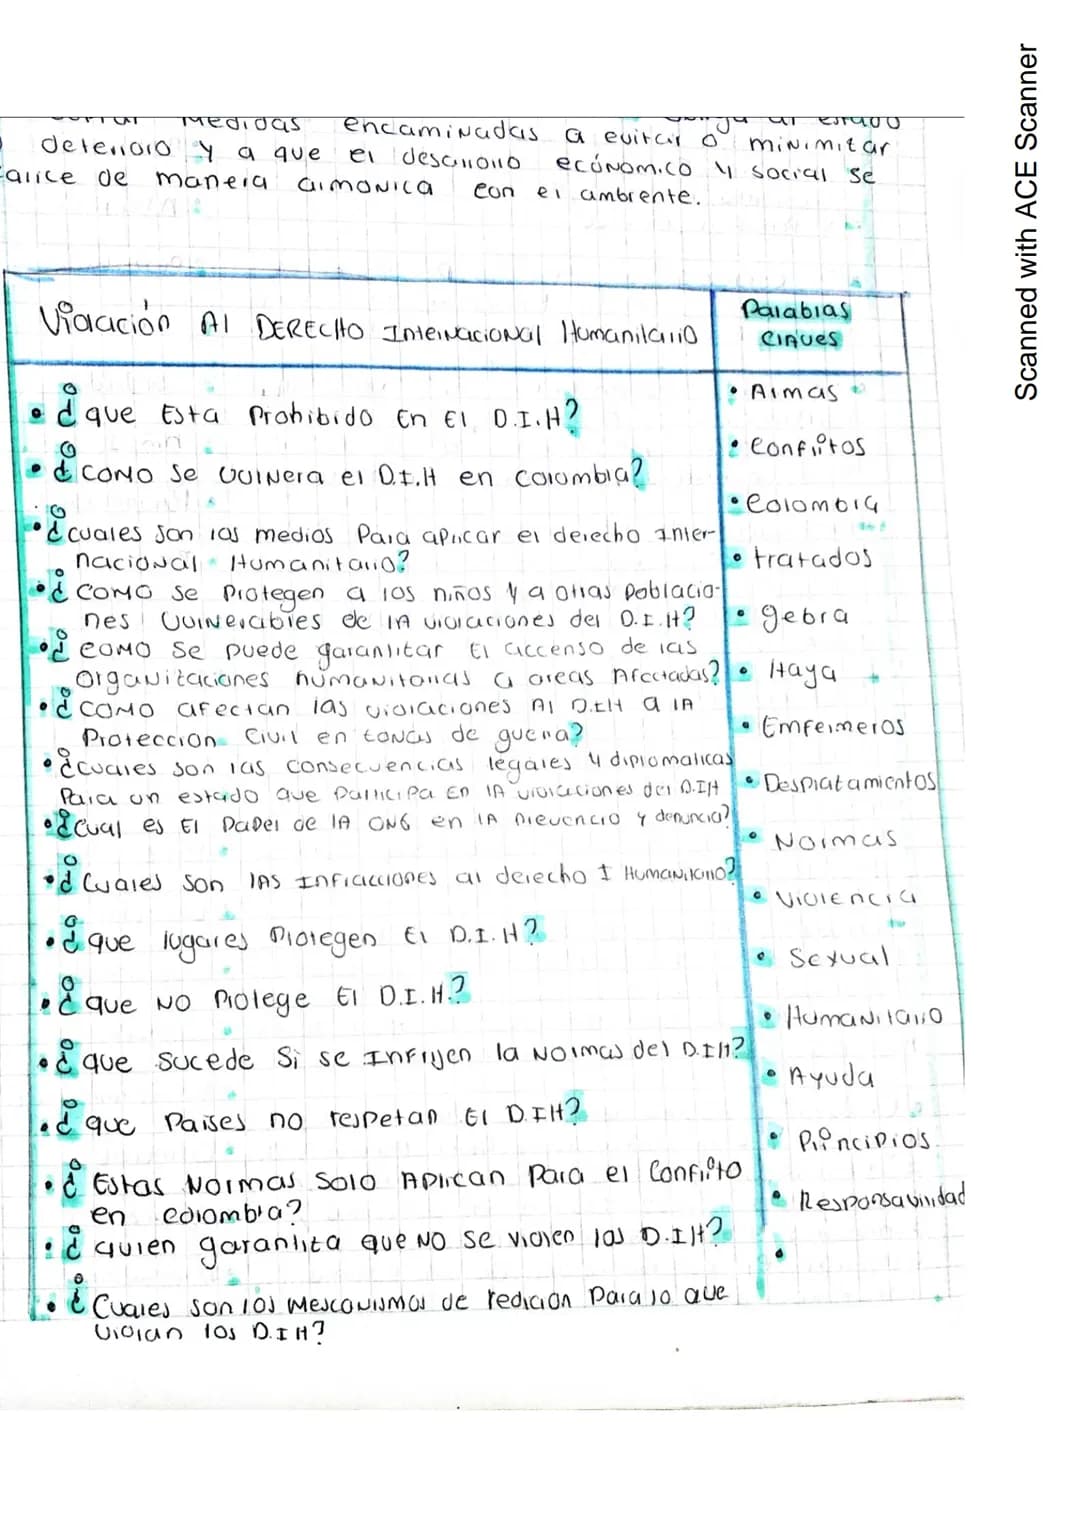 Medidas encaminadas a evitar o minimitar
deterioro y a que el desarrollo ecónomico y social se
de manera armonica con el ambiente.
Violación Al DERECHO Internacional Humanitario
Palabras
Claves
• ¿que Esta Prohibido En El D.I.H?
• ¿COMO Se vulnera el D.I.H en colombia?
• ¿cuales son los medios Para aplicar el derecho Inter-
nacional Humanitario?
• ¿COMO se Protegen a los niños y a otras Poblacio-
nes Vulnerables de lA violaciones del D.I.H?
• ¿COMO Se puede garantitar El accenso de las
Organitaciones humanitarias a areas Afectadas?
• ¿COMO afectan las violaciones Al D.IH a lA
Proteccion Civil en tonas de guerra?
• ¿cuales son las consecuencias legales y diplomaticas
Para un estado que Participa En lA violaciones del D.IH
• ¿Cual es El Papel de lA ONG en lA Prevencio y denuncia?
• ¿Cuales son lAs Infracciones al derecho I Humanitario?
• ¿que lugares Protegen El D.I.H?
• ¿que NO Protege El D.I.H.?
• ¿que sucede Si se Infrijen la Normas del D.IH?
• ¿que Paises no respetan El D.IH?
• ¿Estas Normas Solo Aplican Para el Conflito
en colombia?
• ¿quien garantita que NO se violen los D.IH?
• ¿Cuales son los Mesconismos de redición Para lo que
violan los D.IH?
• Armas
• Conflitos
• Colombia
• tratados
• gebra
• Haya
• Emfermeros
• Desplatamientos
• Normas
• Violencia
• Sexual
• Humanitario
• Ayuda
• Principios.
• Responsavilidad
•
Scanned with ACE Scanner